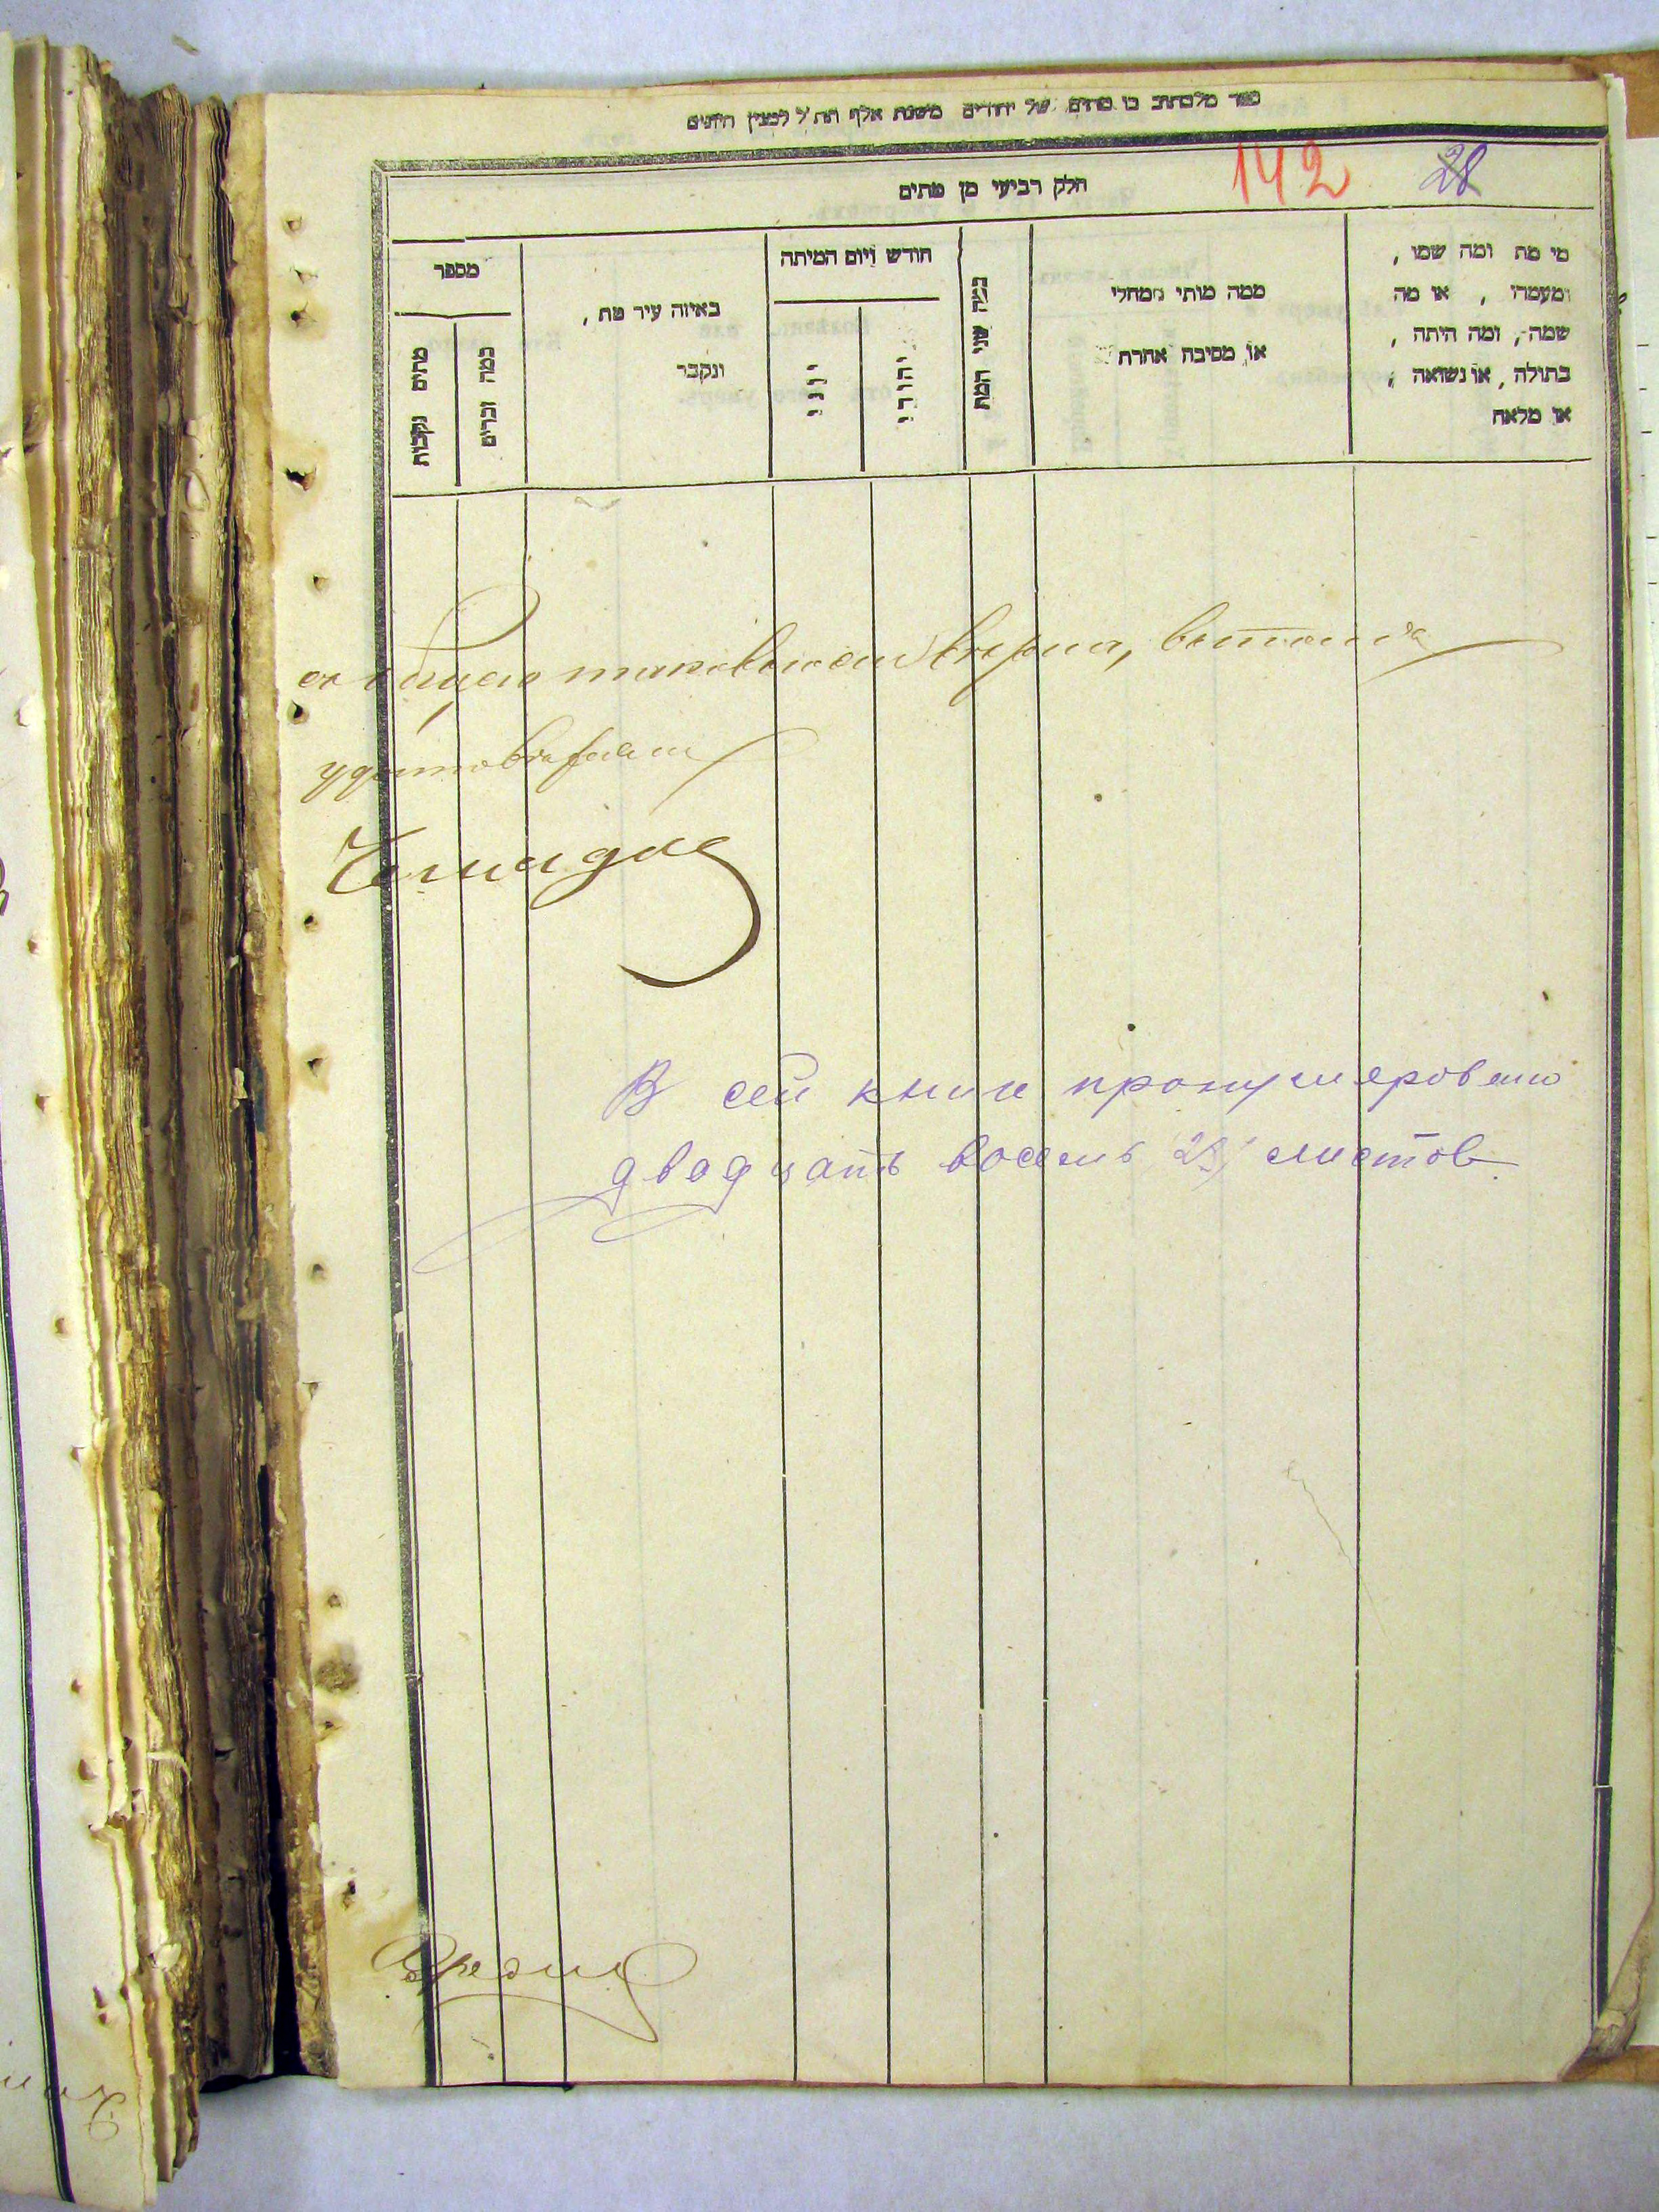 ספר מלכתוב בו מתים של יהודים משנת אלף תת״ל למנין היונים
חלק רביעי מן מתים
142
28
מי מת ומה שמו,
ומעמדו, או מה
שמה, ומה היתה,
בתולה, או נשואה,
או מלאה
ממה מותי ממחלי
או מסיבה אחרת
כמה שני המת
חודש ויום המיתה
יהודי
יוני
באיזה עיר מת,
ונקבר
מספר
כמה זכרים
מתים נקבות
верна, в том
удостоверяем
В сей книге пронумеровано
двадцать восемь (28) листов